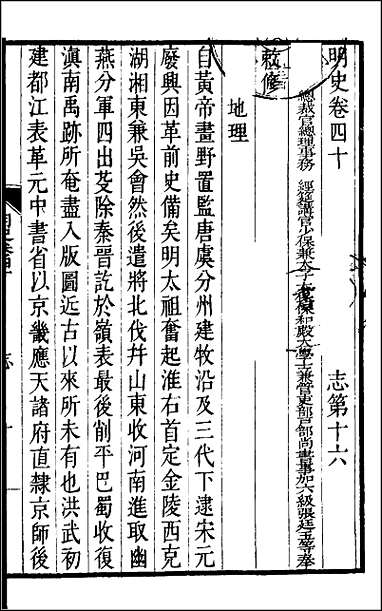 明史卷四十　志第十六
總裁官總理事務　經筵講官少保兼太子太保保和殿大學士兼管吏部戶部尚書事加六級張廷玉等奉
敕修
地理
自黃帝畫野置監唐虞分州建牧沿及三代下逮宋元
廢興因革前史備矣明太祖奮起淮右首定金陵西克
湖湘東兼吳會然後遣將北伐幷山東收河南進取幽
燕分軍四出芟除秦晉訖於嶺表最後削平巴蜀收復
滇南禹跡所奄盡入版圖近古以來所未有也洪武初
建都江表革元中書省以京畿應天諸府直隸京師後